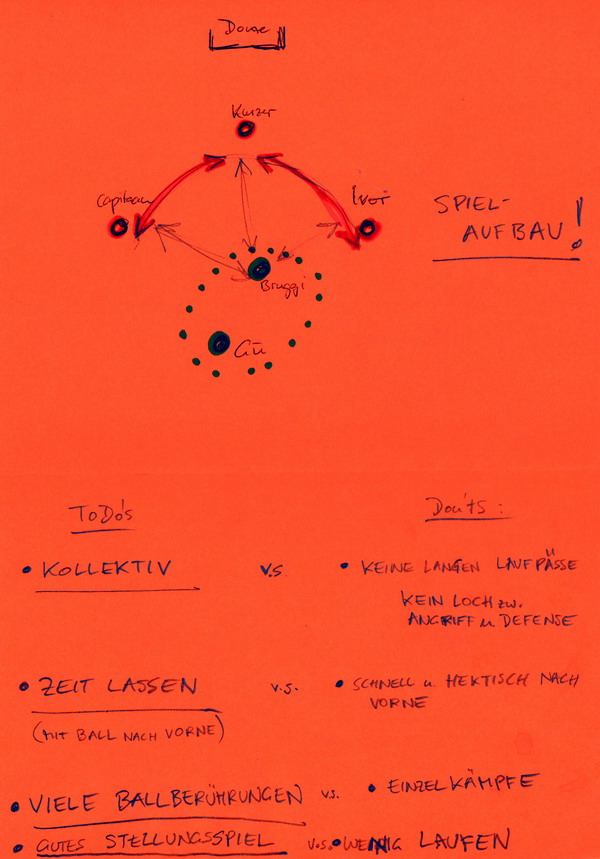 Kurzer
Capitaen
Iver
SPIEL-
AUFBAU!
Bruggi
Gü
ToDo's
Don'ts:
• KOLLEKTIV
v.s
• KEINE LANGEN LAUFPÄSSE
KEIN LOCH zw.
ANGRIFF u. DEFENSE
• ZEIT LASSEN
(MIT BALL NACH VORNE)
v.s.
• SCHNELL u. HEKTISCH NACH
VORNE
• VIELE BALLBERÜHRUNGEN
vs.
• EINZELKÄMPFE
• GUTES STELLUNGSSPIEL
v.s.
• WENIG LAUFEN